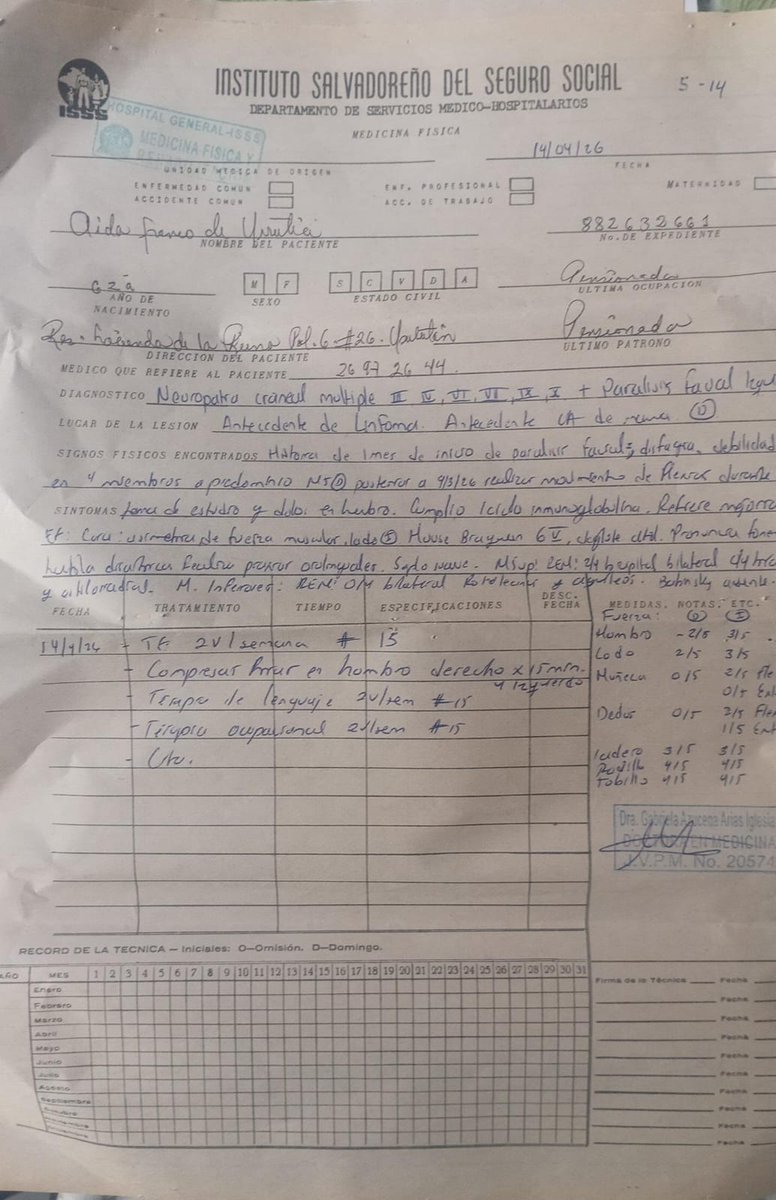 ISSS
INSTITUTO SALVADOREÑO DEL SEGURO SOCIAL
5-14
DEPARTAMENTO DE SERVICIOS MEDICO-HOSPITALARIOS
HOSPITAL GENERAL-ISSS
MEDICINA FISICA Y
MEDICINA FISICA
14/04/26
UNIDAD MEDICA DE ORIGEN
FECHA
ENFERMEDAD COMUN
ENF. PROFESIONAL
MATERNIDAD
ACCIDENTE COMUN
ACC. DE TRABAJO
Aida Franco de
882632661
NOMBRE DEL PACIENTE
No. DE EXPEDIENTE
62a
M F
S C V D A
Pensionada
AÑO DE NACIMIENTO
SEXO
ESTADO CIVIL
ULTIMA OCUPACION
Res. Hacienda de la Pol. 6 #26.
Pensionada
DIRECCION DEL PACIENTE
ULTIMO PATRONO
MEDICO QUE REFIERE AL PACIENTE 26 97 26 44.
DIAGNOSTICO Neuropatia craneal multiple III IV, VI, VII, IX, X + Paralisis facial
LUGAR DE LA LESION Antecedente de Linfoma. Antecedente CA de mama
SIGNOS FISICOS ENCONTRADOS Historia de 1 mes de inicio de paralisis facial, disfagia, debilidad
en 4 miembros a predominio posterior a 4/3/26 realizar movimiento de durante
SINTOMAS toma de estudio y dolor en hombro. Cumplio ciclo inmunoglobulina. Refiere mejoria
EF: Cara: asimetria de fuerza muscular, lado House Brackman 6 V, deglute Pronuncia
habla
M. Inferiores: REM: 0/4 bilateral Rotuliano y aquileos. Babinsky ausente.
FECHA
TRATAMIENTO
TIEMPO
ESPECIFICACIONES
DESC. FECHA
MEDIDAS, NOTAS, ETC.
Fuerza:
14/4/26 - TF 2V/semana # 15
Hombro -2/5 3/5
Codo 2/5 3/5
- Compresas en hombro derecho x 15 min.
y izquierdo
Muñeca 0/5 2/5
0/5 Ext
- Terapia de lenguaje 2V/sem #15
Dedos 0/5 2/5
1/5 Ext
- Terapia ocupacional 2V/sem #15
Cadera 3/5 3/5
- Ctr.
Rodilla 4/5 4/5
Tobillo 4/5 4/5
Dra. Gabriela Azucena Arias Iglesia
DOCTORA EN MEDICINA
J.V.P.M. No. 20574
RECORD DE LA TECNICA — Iniciales: O—Omisión. D—Domingo.
AÑO MES 1 2 3 4 5 6 7 8 9 10 11 12 13 14 15 16 17 18 19 20 21 22 23 24 25 26 27 28 29 30 31
Firma de la Técnica Fecha
Enero
Febrero Fecha
Marzo Fecha
Abril Fecha
Mayo Fecha
Junio Fecha
Julio Fecha
Agosto Fecha
Septiembre Fecha
Octubre Fecha
Noviembre Fecha
Diciembre Fecha